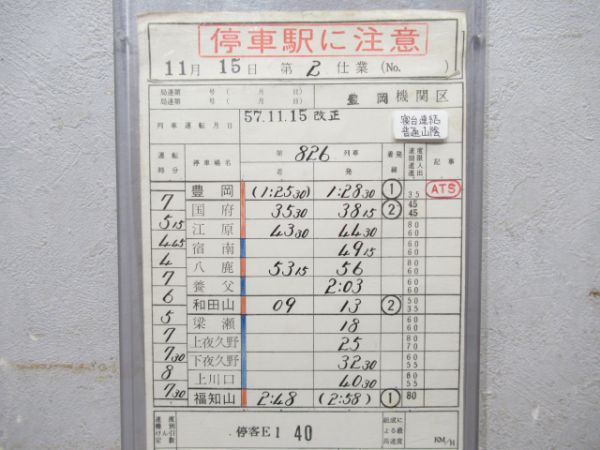 停車駅に注意
11月 15日 第 2 仕業 (No. )
局達第 号 ( 月 日)
局達第 号 ( 月 日)
豊岡機関区
列車運転月日 57.11.15 改正
寝台連結
普通山陰
運転時分 停車場名 第 826 列車 着 発 着発線 速度制限 記事
豊岡 (1:25 30) 1:28 30 ① 35 ATS
7
国府 35 30 38 15 ② 45 45
5 15
江原 43 30 44 30 80 60
4 45
宿南 49 15 60 60
4
八鹿 53 15 56 60 60
7
養父 2:03 60 60
6
和田山 09 13 ② 50 35
5
梁瀬 18 60 60
7
上夜久野 25 80 70
7 30
下夜久野 32 30 60 55
8
上川口 40 30 60 55
7 30
福知山 2:48 (2:58) ① 80
停客E1 40
KM/H